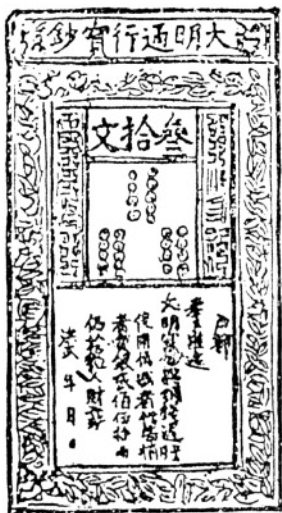 大明通行寶鈔
叁拾文
戶部
奏准印造
大明寶鈔與銅錢通行
使用偽造者斬告捕
者賞銀貳佰伍拾兩
仍給犯人財產
洪武 年 月 日